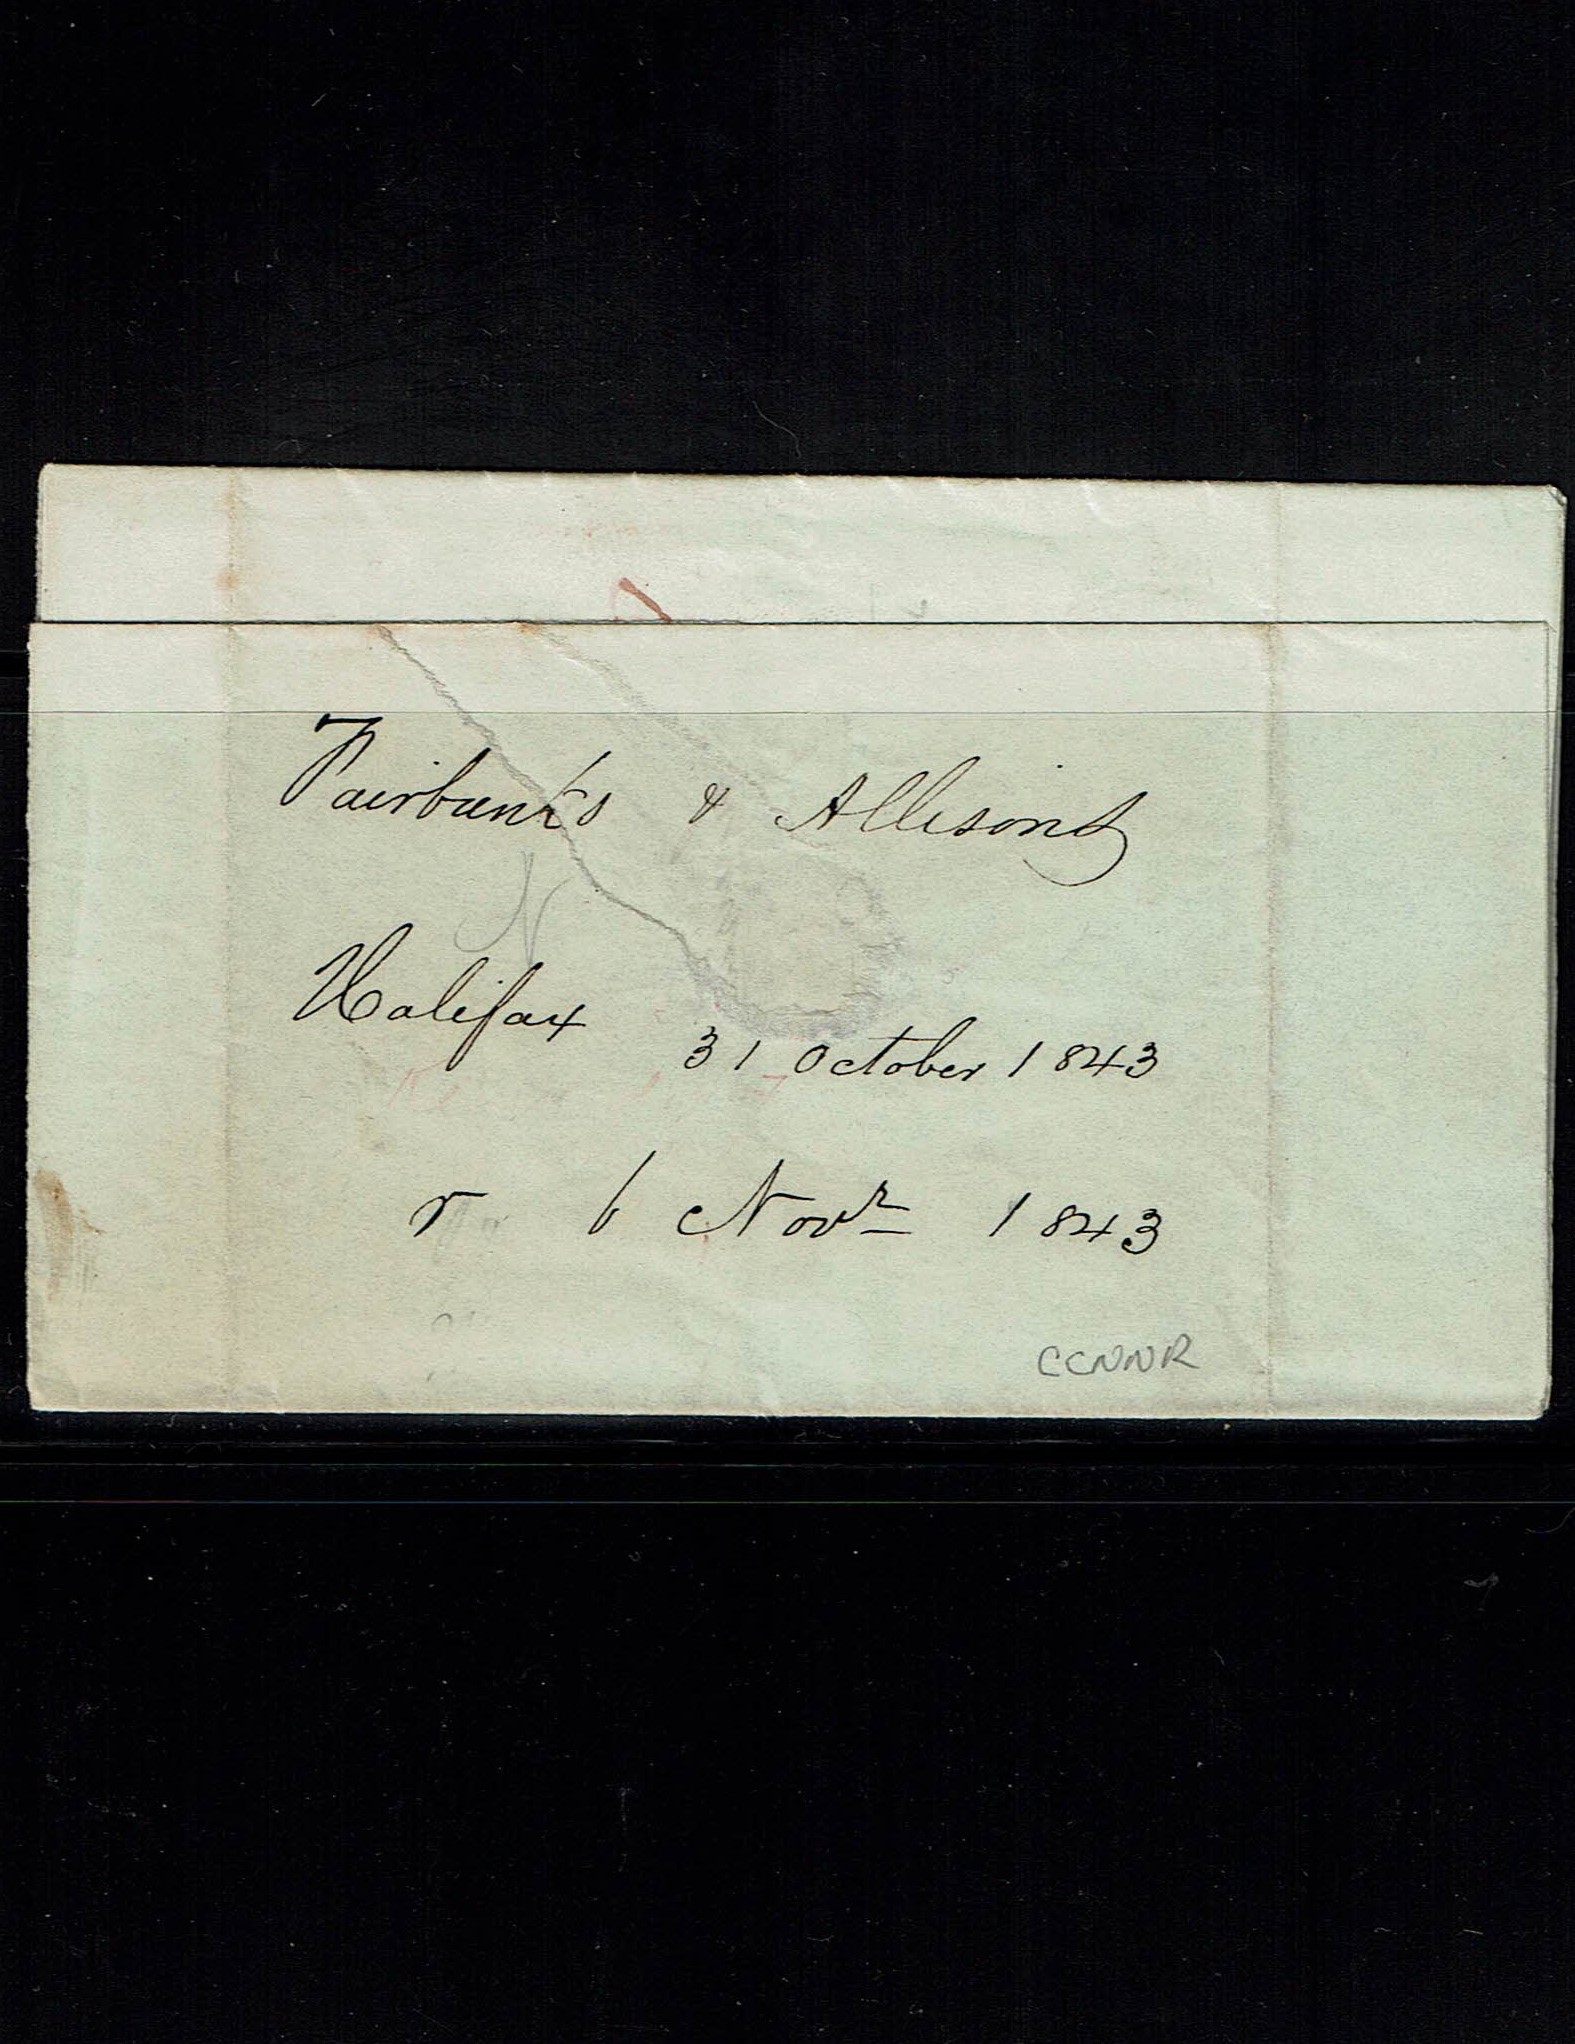 Fairbanks & Allisons
Halifax
31 October 1843
r 6 Novr 1843
CCNNR